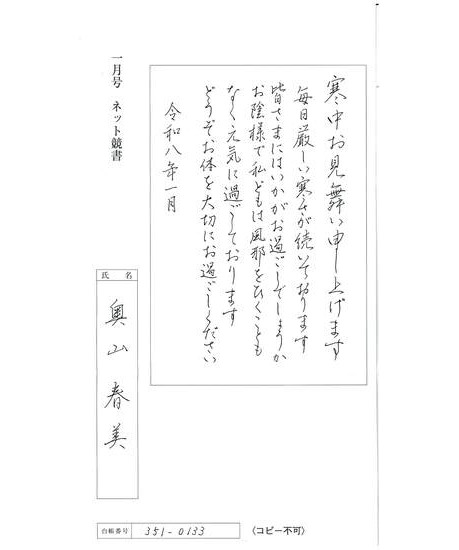 寒中お見舞い申し上げます
毎日厳しい寒さが続いております
皆さまにはいかがお過ごしでしょうか
お陰様で私どもは風邪をひくことも
なく元気に過ごしております
どうぞお体を大切にお過ごしください
令和八年一月
一月号 ネット競書
氏名
奥山春美
台帳番号 351-0133
〈コピー不可〉